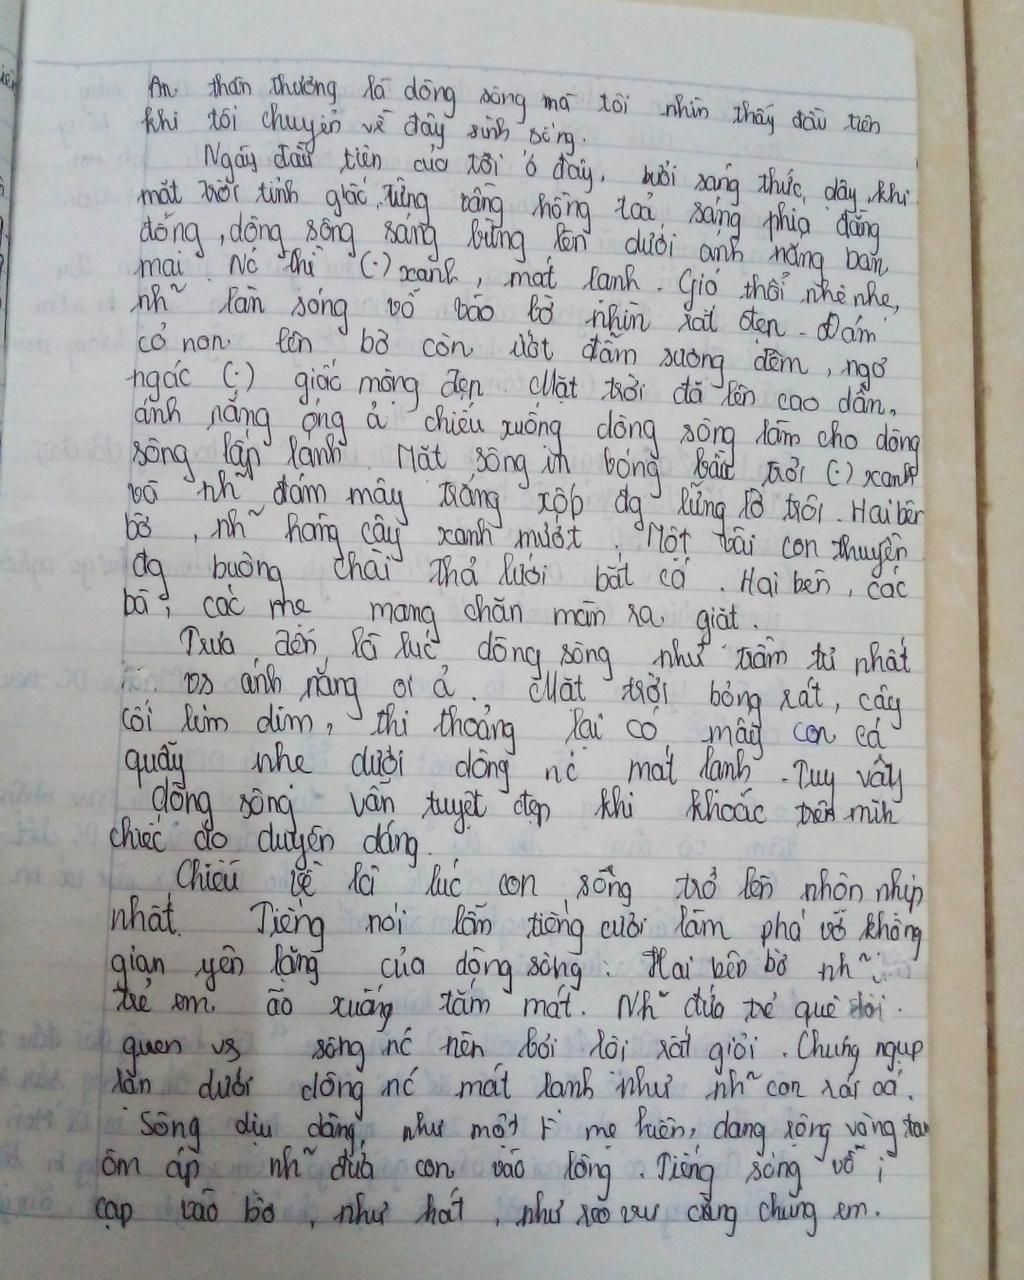 An thân thương là dòng sông mà tôi nhìn thấy đầu tiên
khi tôi chuyển về đây sinh sống.
Ngày đầu tiên của tôi ở đây, buổi sáng thức dậy, khi
mặt trời tỉnh giấc, từng vầng hồng toả sáng phía đằng
đông, dòng sông sáng bừng lên dưới ánh nắng ban
mai. Nó thì (:) xanh, mát lành. Gió thổi nhè nhẹ,
nh~ làn sóng vỗ vào bờ nhìn rất đẹp. Đám
cỏ non lên bờ còn ướt đẫm sương đêm, ngơ
ngác (:) giấc mộng đẹp. Mặt trời đã lên cao dần,
ánh nắng óng ả chiếu xuống dòng sông làm cho dòng
sông lấp lánh. Mặt sông in bóng bầu trời (:) xanh
và nh~ đám mây trắng xốp đg lững lờ trôi. Hai bên
bờ, nh~ hàng cây xanh mướt. Một vài con thuyền
đg buông chài thả lưới bắt cá. Hai bên, các
bà, các mẹ mang chăn màn ra giặt.
Trưa đến là lúc dòng sông như trầm tư nhất
vs ánh nắng oi ả. Mặt trời bỏng rát, cây
cối lim dim, thi thoảng lại có mấy con cá
quẫy nhẹ dưới dòng nc mát lành. Tuy vậy
dòng sông vẫn tuyệt đẹp khi khoác trên mình
chiếc áo duyên dáng.
Chiều về là lúc con sông trở lên nhộn nhịp
nhất. Tiếng nói lẫn tiếng cười làm phá vỡ không
gian yên lặng của dòng sông. Hai bên bờ nh~
trẻ em ào xuống tắm mát. Nh~ đứa trẻ quê
quen vs sông nc nên bơi lội rất giỏi. Chúng ngụp
lặn dưới dòng nc mát lành như nh~ con rái cá.
Sông dịu dàng, như một mẹ hiền, dang rộng vòng tay
ôm ấp nh~ đứa con vào lòng. Tiếng sóng vỗ ì
oạp vào bờ, như hát, như reo vui cùng chúng em.